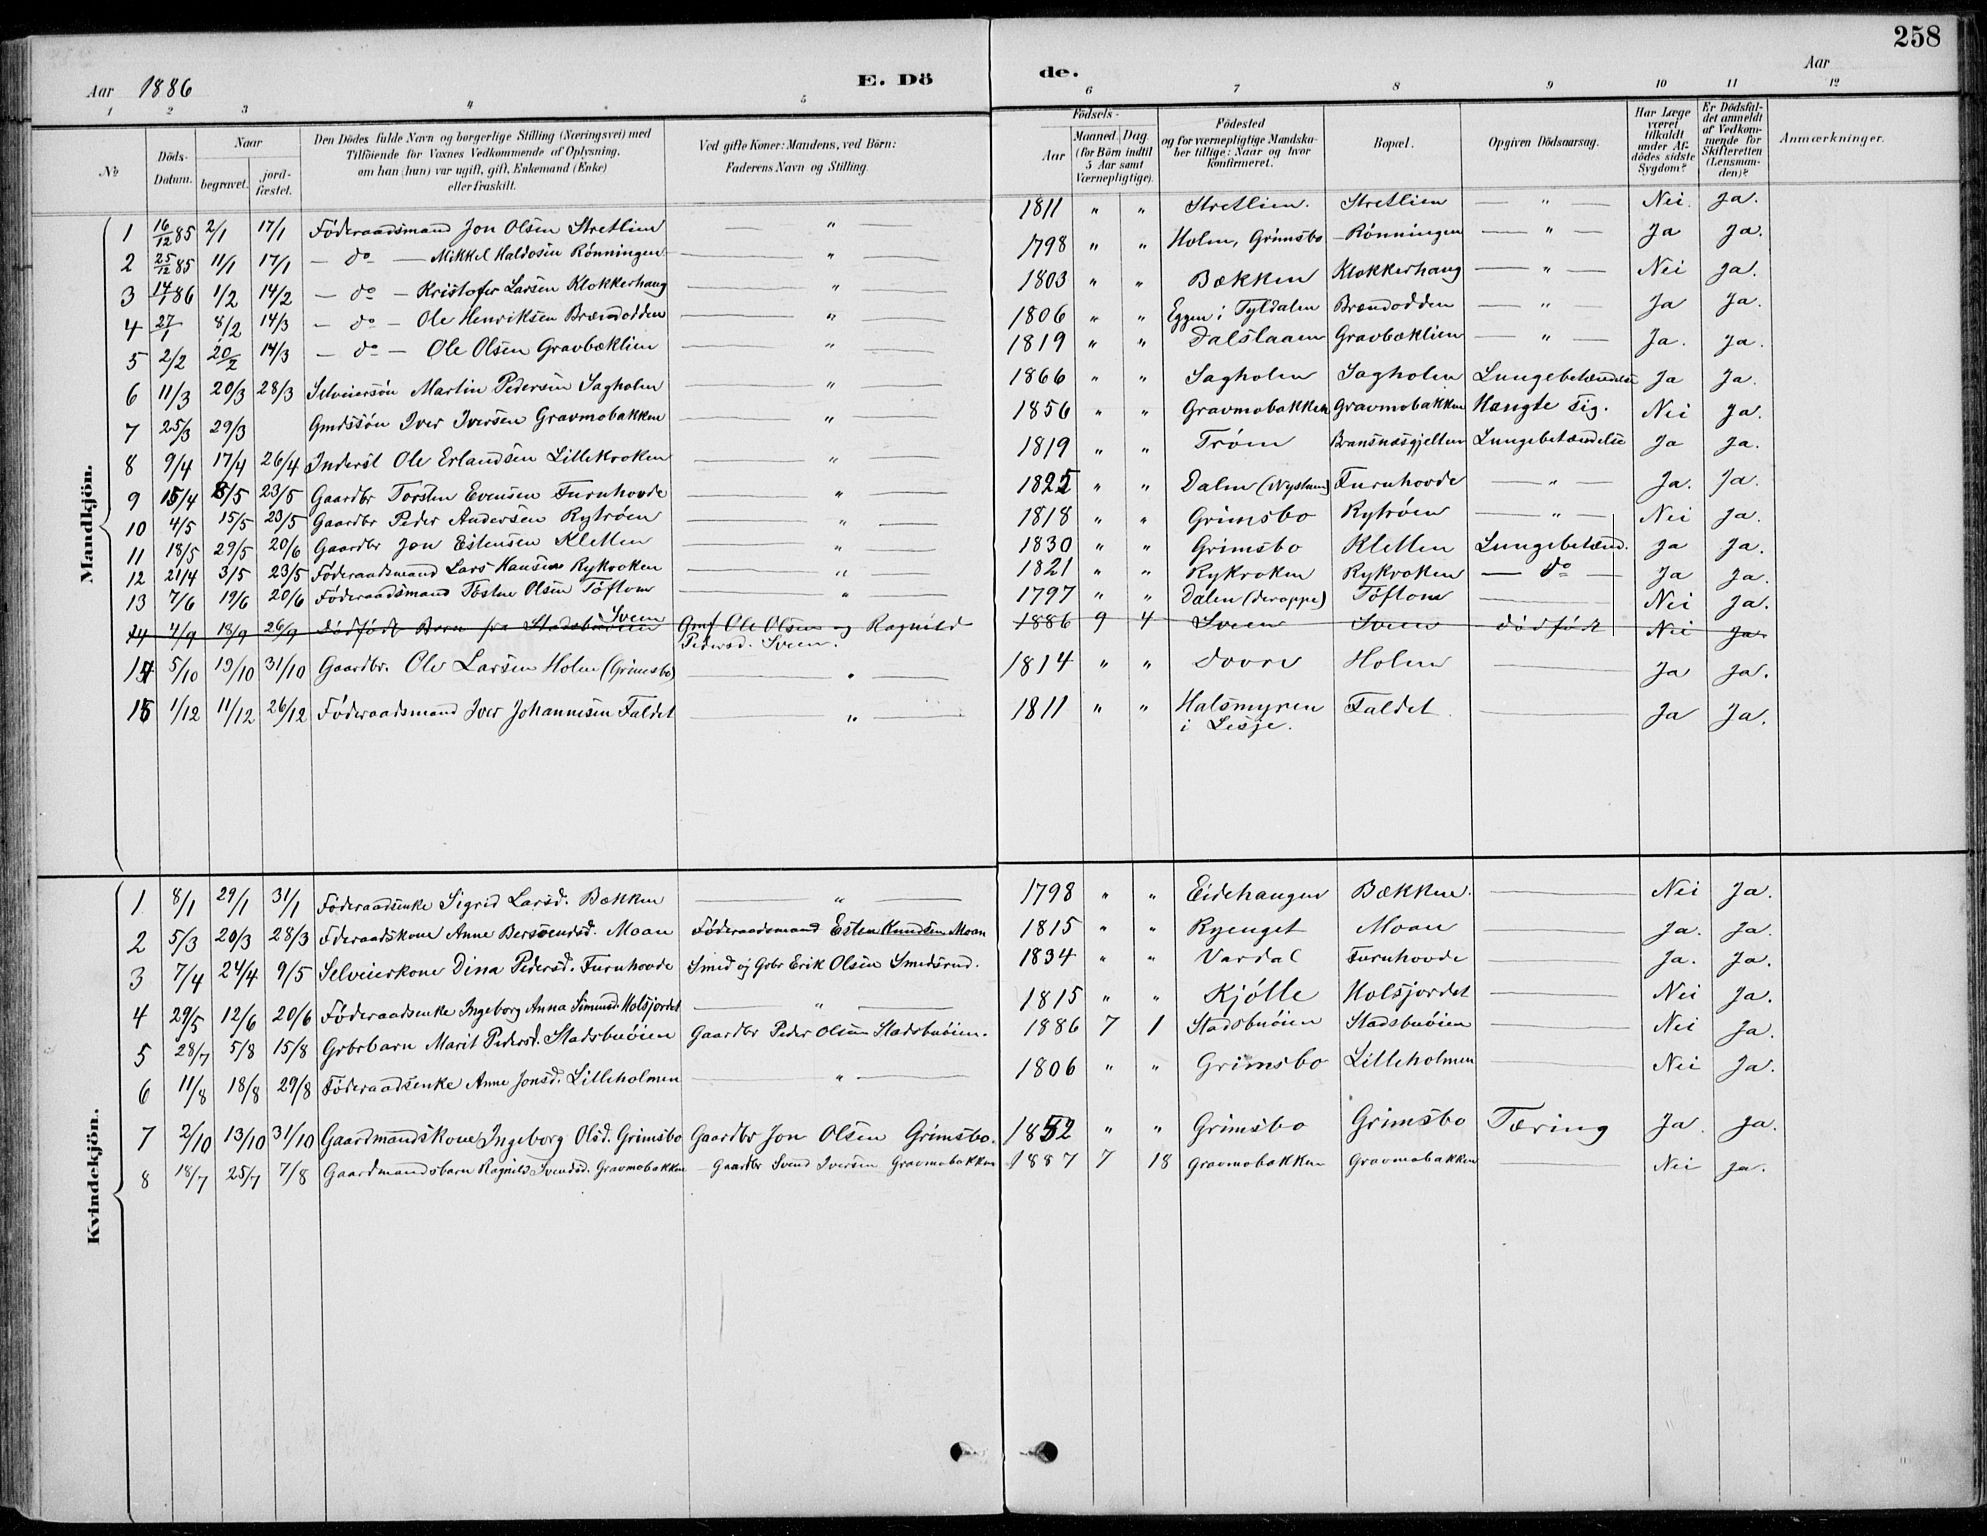 258
Aar 1886
E. Dö de.
Aar
1 2 3 4 5 6 7 8 9 10 11 12
No
Döds-Datum.
Naar
begravet.
jord-fæstet.
Den Dödes fulde Navn og borgerlige Stilling (Næringsvei) med
Tilföiende for Voxnes Vedkommende af Oplysning,
om han (hun) var ugift, gift, Enkemand (Enke)
eller fraskilt.
Ved gifte Koner: Mandens, ved Börn:
Faderens Navn og Stilling.
Födsels-
Aar
Maaned Dag
(for Börn indtil
5 Aar samt
Værnepligtige).
Födested
og for værnepligtige Mandska-
ber tillige: Naar og hvor
konfirmeret.
Bopæl.
Opgiven Dödsaarsag.
Har Læge
været
tilkaldt
under Af-
dödes sidste
Sygdom?
Er Dödsfal-
det anmeldt
af Vedkom-
mende for
Skifteretten
(Lensman-
den)?
Anmærkninger.
Mandkjön.
1 16/12 85 2/1 17/1 Föderaadsmand Jon Olsen Stretlien — " 1811 " " Stretlien. Stretlien — " — Nei. Ja.
2 25/12 85 11/1 17/1 — do — Mikkel Haldosen Rønningen — " 1798 " " Holm, Grimsbo Rønningen — " — Ja Ja.
3 14/1 86 1/2 14/2 — do — Kristofer Larsen Klokkerhaug — " 1803 " " Bækken Klokkerhaug — " — Nei Ja.
4 27/1 8/2 14/3 — do — Ole Henriksen Brændodden — " 1806 " " Eggen i Tyldalen Brændodden — " — Ja Ja.
5 2/2 20/2 14/3 — do — Ole Olsen Gravbæklien — " 1819 " " Dalslaaen Gravbæklien — " — Ja. Ja.
6 11/3 20/3 28/3 Selveiersøn Martin Pedersen Sagholen — " 1866 " " Sagholen Sagholen Lungebetændelse Ja Ja.
7 25/3 29/3 Gmdssøn Iver Iversen Gravmobakken — " 1856 " " Gravmobakken Gravmobakken Hængte sig. Nei Ja.
8 9/4 17/4 26/4 Inderst Ole Erlandsen Lillekroken — " 1819 " " Trøen Bransnæsgjelten Lungebetændelse Ja Ja.
9 15/4 5/5 23/5 Gaardbr Torsten Evensen Furuhovde — " 1825 " " Dalen (Nystuen) Furuhovde — " — Ja. Ja.
10 4/5 15/5 23/5 Gaardbr Peder Andersen Rytrøen — " 1818 " " Grimsbo Rytrøen — " — Nei Ja.
11 18/5 29/5 20/6 Gaardbr Jon Estensen Kletten — " 1830 " " Grimsbo Kletten Lungebetænd. Ja Ja.
12 21/4 3/5 23/5 Föderaadsmand Lars Hansen Rykroken — " 1821 " " Rykroken Rykroken — do — Ja Ja.
13 7/6 19/6 20/6 Föderaadsmand Tosten Olsen Töftom — " 1797 " " Dalen (deroppe) Töftom — Nei Ja.
14 4/9 18/9 26/9 Dødfødt Barn fra Sveen Gmf Ole Olsen og Ragnild 1886 9 4 Sveen Sveen dødfødt Nei Ja
Pedersd. Sveen.
14 5/10 19/10 31/10 Gaardbr. Ole Larsen Holm (Grimsbo) — " 1814 " " Dovre Holm — Ja Ja.
15 1/12 11/12 26/12 Föderaadsmand Iver Johannesen Faldet — " 1811 " " Halsmyren Faldet. — Ja Ja.
i Lesje.
Kvindekjön.
1 8/1 29/1 31/1 Föderaadsenke Sigrid Larsd. Bækken — " 1798 " " Eidehaugen Bækken. — Nei Ja.
2 5/3 20/3 28/3 Fderaadskone Anne Bersvendsd. Moan Föderaadsmand Esten Knudsen Moan 1815 " " Ryenget Moan — Ja. Ja.
3 7/4 24/4 9/5 Selveierkone Dina Pedersd. Furuhovde Smed og Gbr Erik Olsen Smedsrud. 1834 " " Vardal Furuhovde — Ja. Ja.
4 29/5 12/6 20/6 Föderaadsenke Ingeborg Anna Simensd. Holsjordet — " 1815 " " Kjölle Holsjordet — Nei Ja.
5 28/7 5/8 15/8 Grbrbarn Marit Pedersd. Stadsbuöien Gaardbr Peder Olsen Stadsbuöien. 1886 7 1 Stadsbuöien Stadsbuöien — Nei Ja.
6 11/8 18/8 29/8 Föderaadsenke Anne Jonsd. Lilleholmen — " 1806 " " Grimsbo Lilleholmen — Nei Ja.
7 2/10 13/10 31/10 Gaardmandskone Ingeborg Olsd. Grimsbo Gaardbr Jon Olsen Grimsbo. 1852 " " Grimsbo Grimsbo Tæring Ja. Ja.
8 18/7 25/7 7/8 Gaardmandsbarn Ragnild Svendsd. Gravmobakken Gaardbr Svend Iversen Gravmobakken 1887 7 18 Gravmobakken Gravmobakken — Nei Ja.